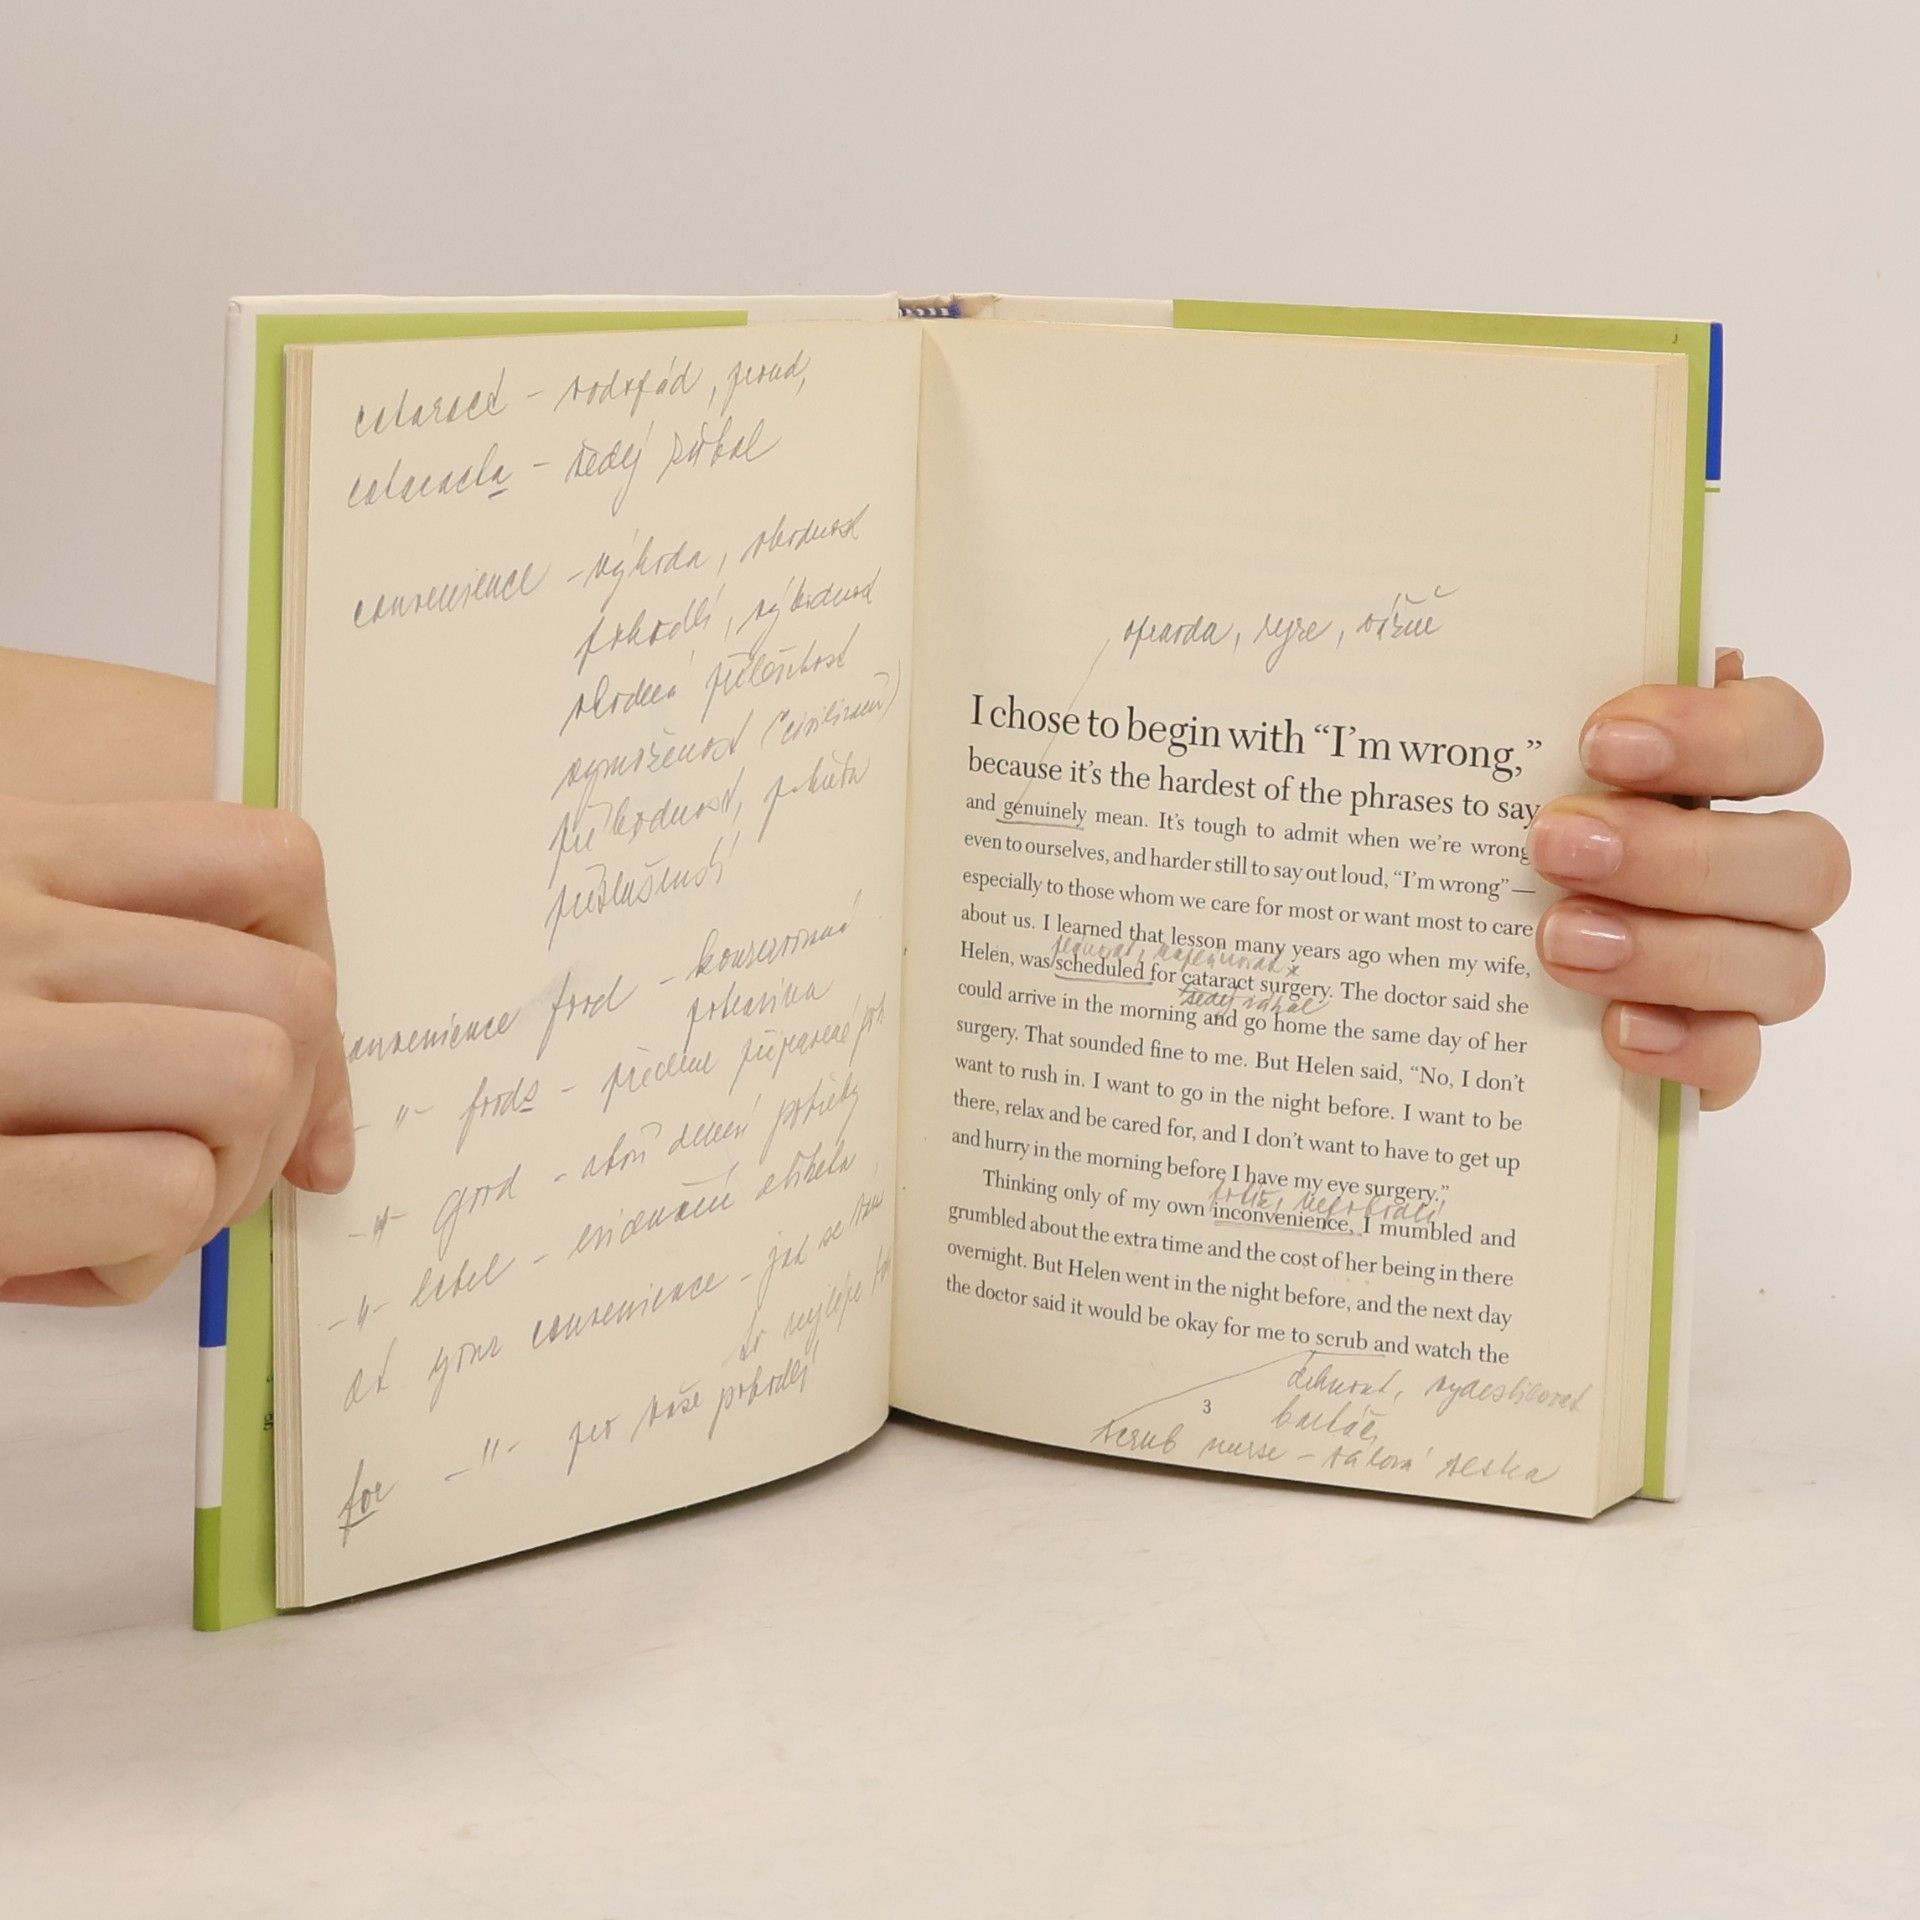 cataract – vodopád, proud,
cataracta – šedý zákal
convenience – výhoda, vhodnost
pohodlí, výhodnost
vhodná příležitost
vymoženost (civilizační)
příhodnost,
příslušenství
convenience food – konzervovaná
potravina
–"– foods – předem připravené
–"– good – zboží denní potřeby
–"– label –
at your convenience – jak se vám
to nejlépe
for –"– pro vaše pohodlí
opravdu, ryze, vážně
I chose to begin with “I’m wrong,”
because it’s the hardest of the phrases to say
and genuinely mean. It’s tough to admit when we’re wrong
even to ourselves, and harder still to say out loud, “I’m wrong” —
especially to those whom we care for most or want most to care
about us. I learned that lesson many years ago when my wife,
plánovat, naplánovat x
Helen, was scheduled for cataract surgery. The doctor said she
šedý zákal
could arrive in the morning and go home the same day of her
surgery. That sounded fine to me. But Helen said, “No, I don’t
want to rush in. I want to go in the night before. I want to be
there, relax and be cared for, and I don’t want to have to get up
and hurry in the morning before I have my eye surgery.”
potíž, nepohodlí
Thinking only of my own inconvenience, I mumbled and
grumbled about the extra time and the cost of her being in there
overnight. But Helen went in the night before, and the next day
the doctor said it would be okay for me to scrub and watch the
3
scrub nurse – sálová sestra